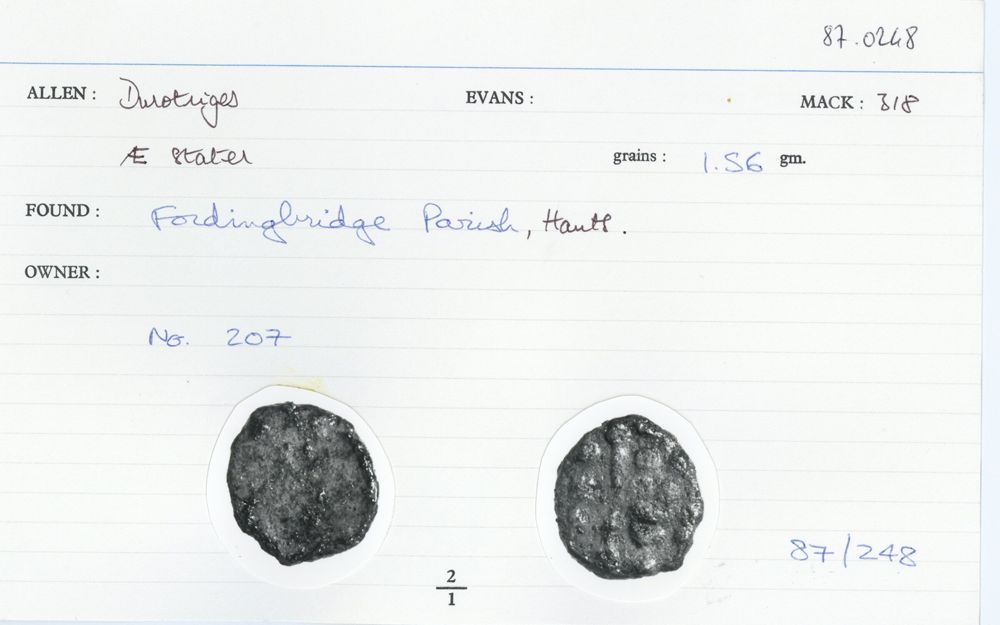 87.0248
ALLEN : Durotriges EVANS : MACK : 318
Æ Stater grains : 1.56 gm.
FOUND : Fordingbridge Parish, Hants.
OWNER :
No. 207
87/248
2
1